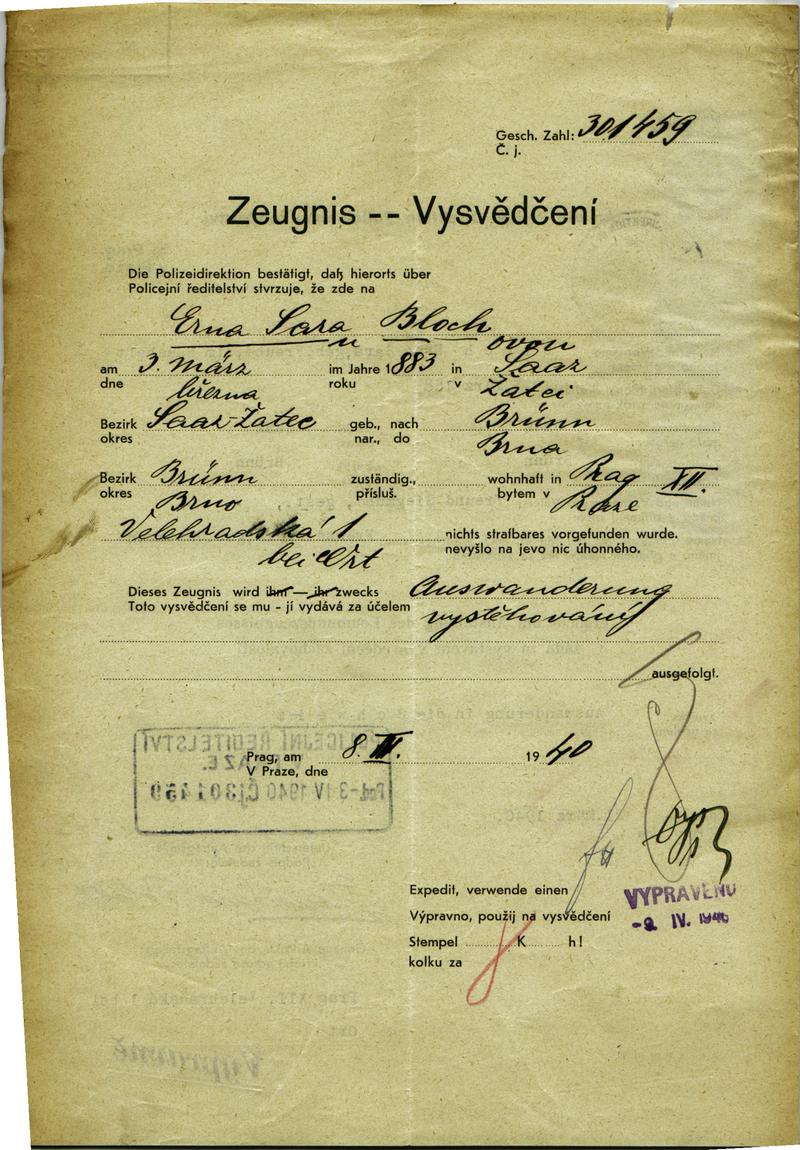 Gesch. Zahl: 301459
Č. j.
Zeugnis -- Vysvědčení
Die Polizeidirektion bestätigt, daß hierorts über
Policejní ředitelství stvrzuje, že zde na
Erna Sara Bloch
u ovou
am 3. März im Jahre 1883 in Saaz
dne března roku v Žatci
Bezirk Saaz-Žatec geb., nach Brünn
okres nar., do Brna
Bezirk Brünn zuständig., wohnhaft in Prag XII.
okres Brno přísluš. bytem v Praze
Velehradská 1 nichts strafbares vorgefunden wurde.
bei Ort nevyšlo na jevo nic úhonného.
Dieses Zeugnis wird ihm — ihr zwecks Auswanderung
Toto vysvědčení se mu - jí vydává za účelem vystěhování
ausgefolgt.
POLICEJNÍ ŘEDITELSTVÍ
Prag, am 8. IV. 1940
V Praze, dne
-3 IV 1940 Čj 301459
Expedit, verwende einen
VYPRAVENO
Výpravno, použij na vysvědčení
-9. IV. 1940
Stempel K h!
kolku za